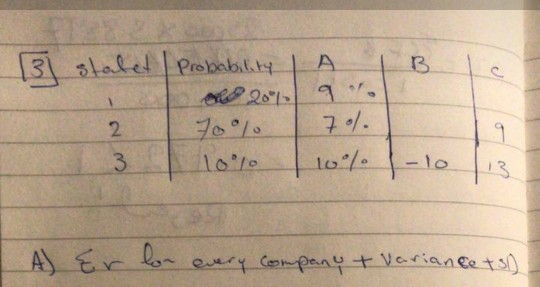 [3] state Probability A B C
1 20% 9%
2 70% 7% 9
3 10% 10% -10 13
A) Er for every company + Variance + SD